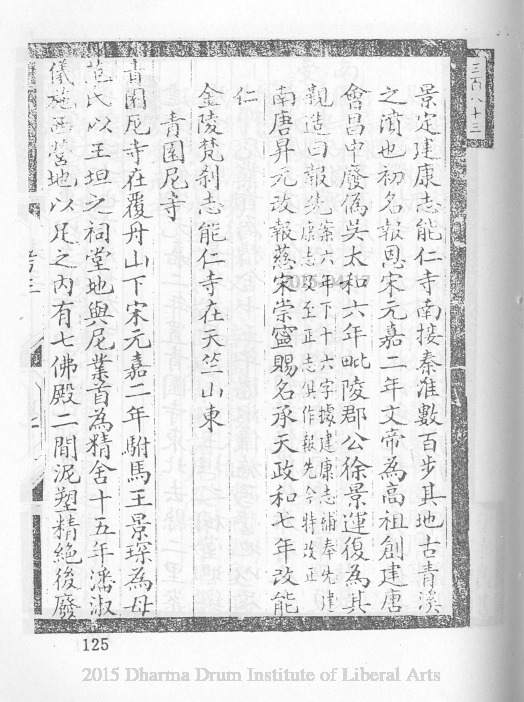 三百八十三
景定建康志能仁寺南接秦淮數百步其地古青溪
之濱也初名報恩宋元嘉二年文帝為高祖創建唐
會昌中廢偽吳太和六年毗陵郡公徐景運復為其
親造曰報先案六年下十六字據建康志補奉先建康志及至正志俱作報先今特改正
南唐昇元改報慈宋崇寧賜名承天政和七年改能
仁
金陵梵刹志能仁寺在天竺山東
青園尼寺
青園尼寺在覆舟山下宋元嘉二年駙馬王景琛為母
范氏以王坦之祠堂地與尼業首為精舍十五年潘淑
儀施西營地以足之內有七佛殿二間泥塑精絕後廢
125
2015 Dharma Drum Institute of Liberal Arts